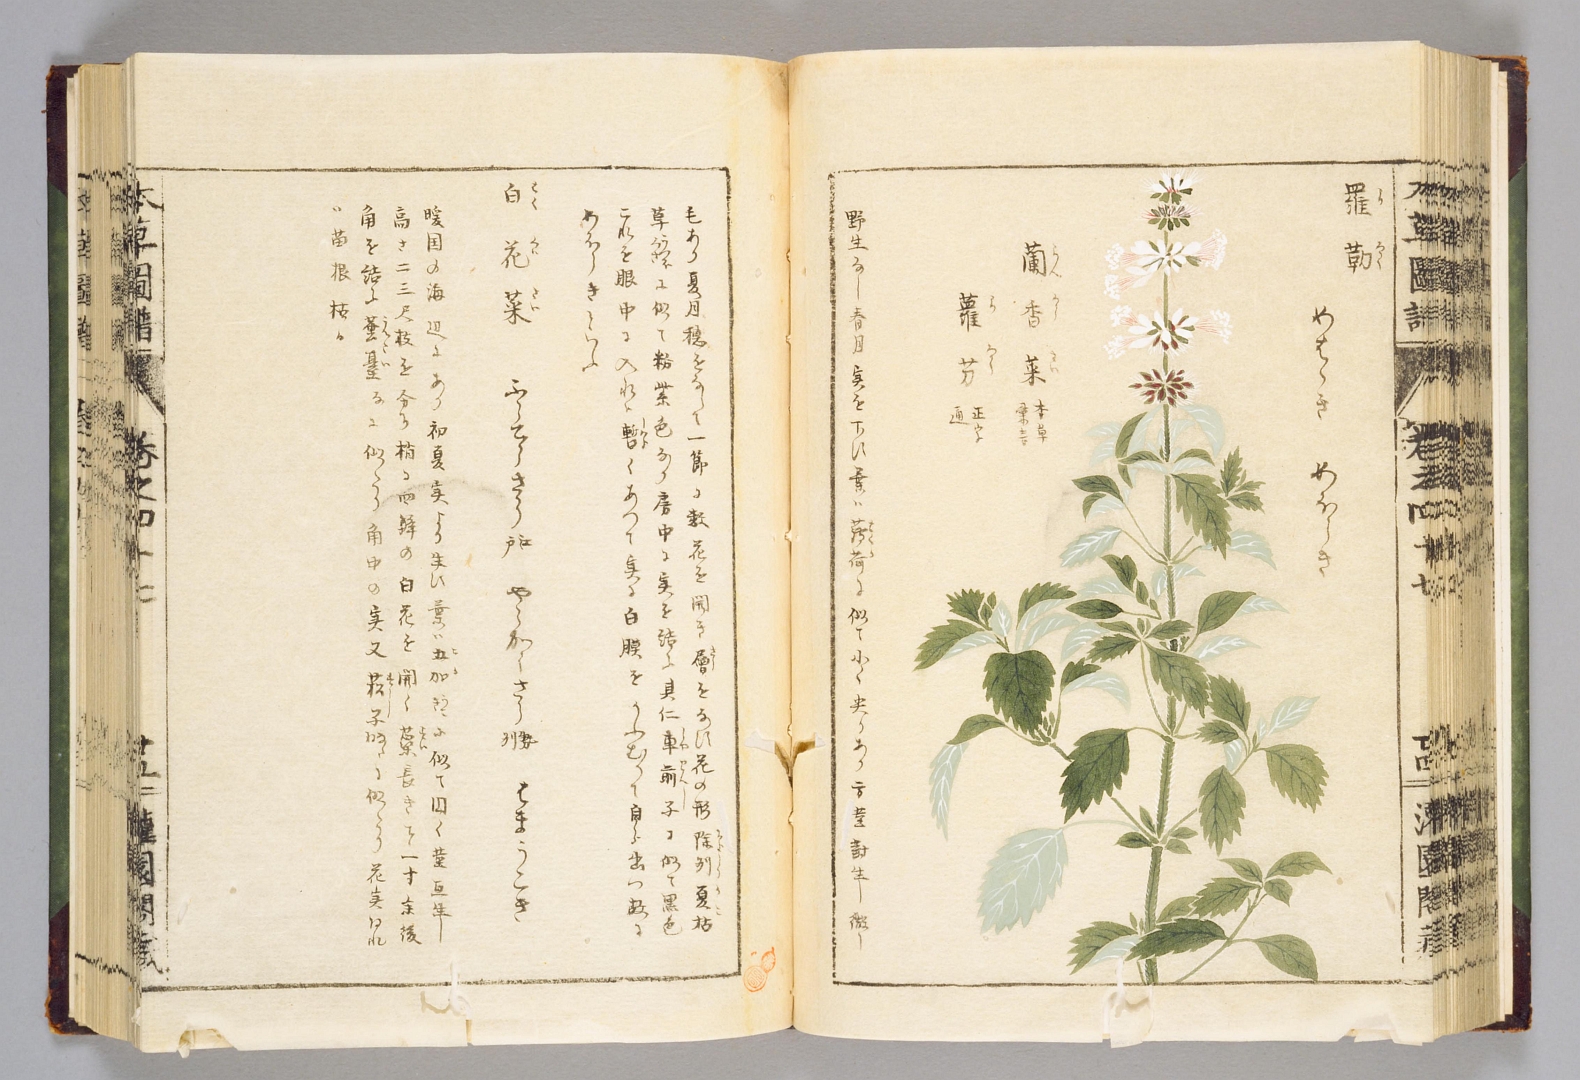 羅勒
めはゝき めぼうき
蘭香菜 本草彙言
蘿艻 正字通
野生なし春月実を下す葉ハ薄荷に似て小く尖りあり方茎対生し微し
毛あり夏月穂をなして一節に数花を開き層をなす花の形 夏枯
草 に似て粉紫色なり房中に実を結ふ其仁車前子に似て黒色
これを眼中に入れハ暫くあつて実に白膜をかふむりて自ら出つ故に
めぼうきといふ
白花菜 ふうてうさう 江戸 やうかくさう 勢州 はまうこぎ
暖国の海辺にあり初夏実より生す葉ハ五加 に似て闊く茎互生し
高さ二三尺枝を分ち梢に四弁の白花を開く蘂長きこと一寸余後
角を結ふ 薹に似たり角中の実又菘子 に似たり花実 れ
ハ苗根枯る
本草図譜 巻之四十七 廿五